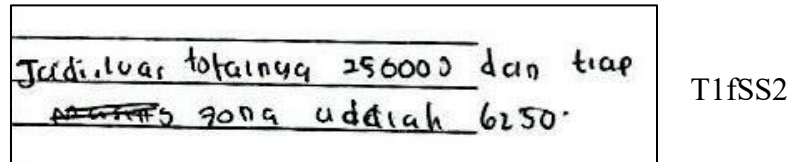 Jadi, luas totalnya 250000 dan tiap
zona adalah 6250.
T1fSS2